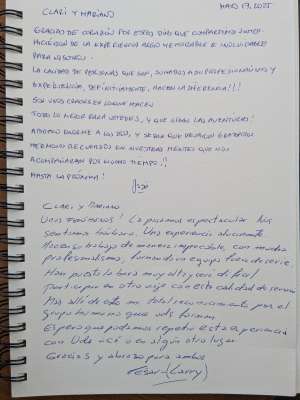 CLARI Y MARIANO
MARZO 17, 2025
GRACIAS DE CORAZÓN POR ESTOS DÍAS QUE COMPARTIMOS JUNTOS
HICIERON DE LA EXPERIENCIA ALGO MEMORABLE E INOLVIDABLE
PARA NOSOTROS.
LA CALIDAD DE PERSONAS QUE SON, SUMADOS A SU PROFESIONALISMO Y
EXPERIENCIA, DEFINITIVAMENTE, HACEN LA DIFERENCIA!!!
SON UNOS CRACKS EN LO QUE HACEN
TODO LO MEJOR PARA USTEDES, Y QUE SIGAN LAS AVENTURAS!
ABRAZO ENORME A LOS DOS, Y SEPAN QUE DEJARON GRABADOS
HERMOSOS RECUERDOS EN NUESTRAS MENTES QUE NOS
ACOMPAÑARAN POR MUCHO TIEMPO!!
HASTA LA PRÓXIMA!
CLARI Y MARIANO
UNOS FENÓMENOS! La pasamos espectacular. Nos
sentimos bárbaro. Una experiencia alucinante
Hacen su trabajo de manera impecable, con mucho
profesionalismo, formando un equipo fuera de serie.
Han puesto la vara muy alta y será difícil
participar en otro viaje con esta calidad de servicio
Más allá de esto mi total reconocimiento por el
grupo humano que uds forman.
Espero que podamos repetir esta experiencia
con Uds acá o en algún otro lugar
Gracias y abrazo para ambos
César (Larry)